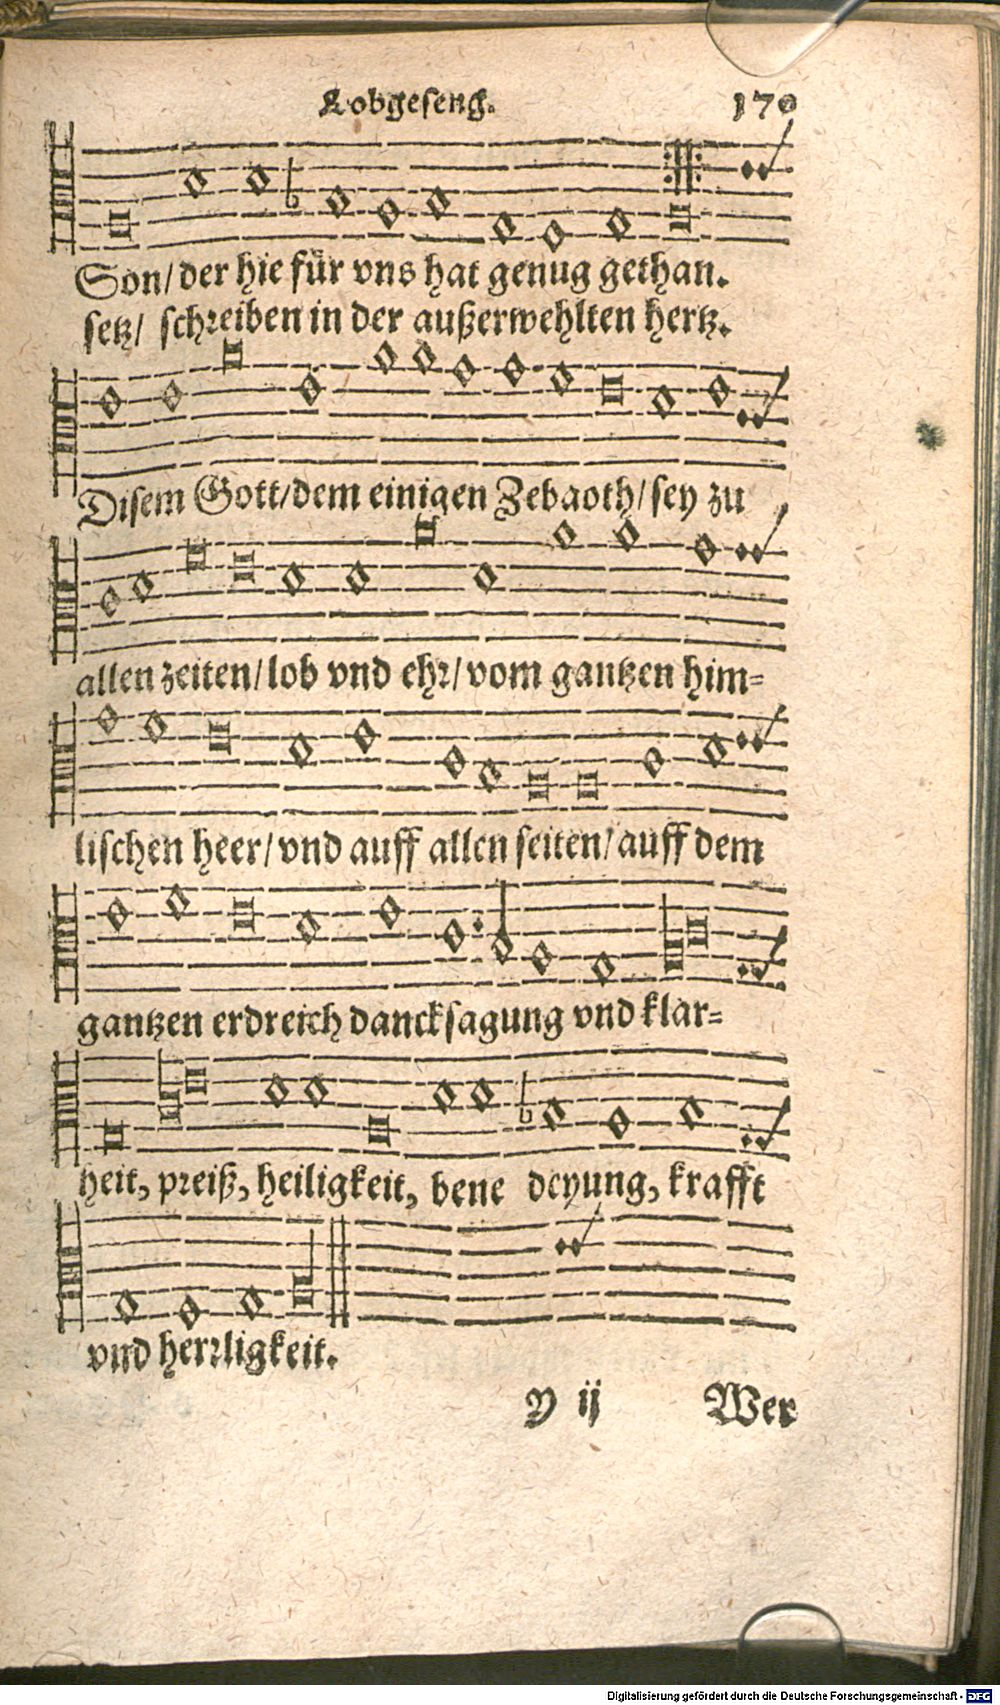 Lobgeseng. 170
Son/ der hie für vns hat genug gethan.
setz/ schreiben in der außerwehlten hertz.
Disem Gott/ dem einigen Zebaoth/ sey zu
allen zeiten/ lob vnd ehr/ vom gantzen him=
lischen heer/ vnd auff allen seiten/ auff dem
gantzen erdreich dancksagung vnd klar=
heit, preiß, heiligkeit, bene deyung, krafft
vnd herrligkeit.
Y ij Wer
Digitalisierung gefördert durch die Deutsche Forschungsgemeinschaft - DFG